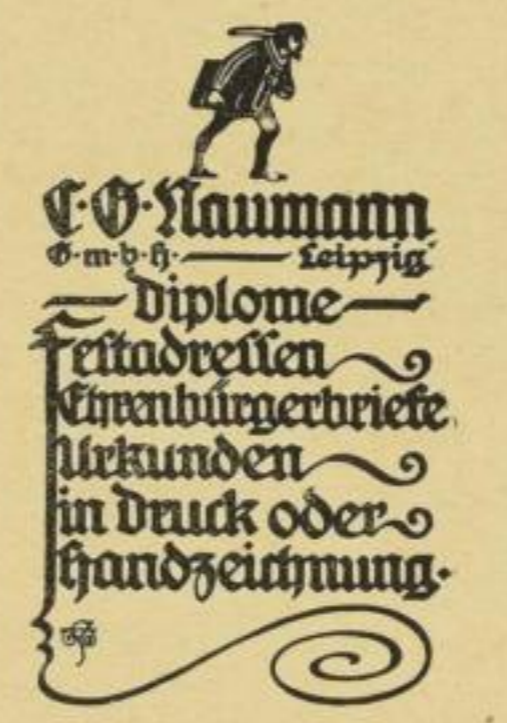 C·G·Naumann
G·m·b·h· Leipzig
Diplome
Festadressen
Ehrenbürgerbriefe
Urkunden
in Druck oder
Handzeichnung.